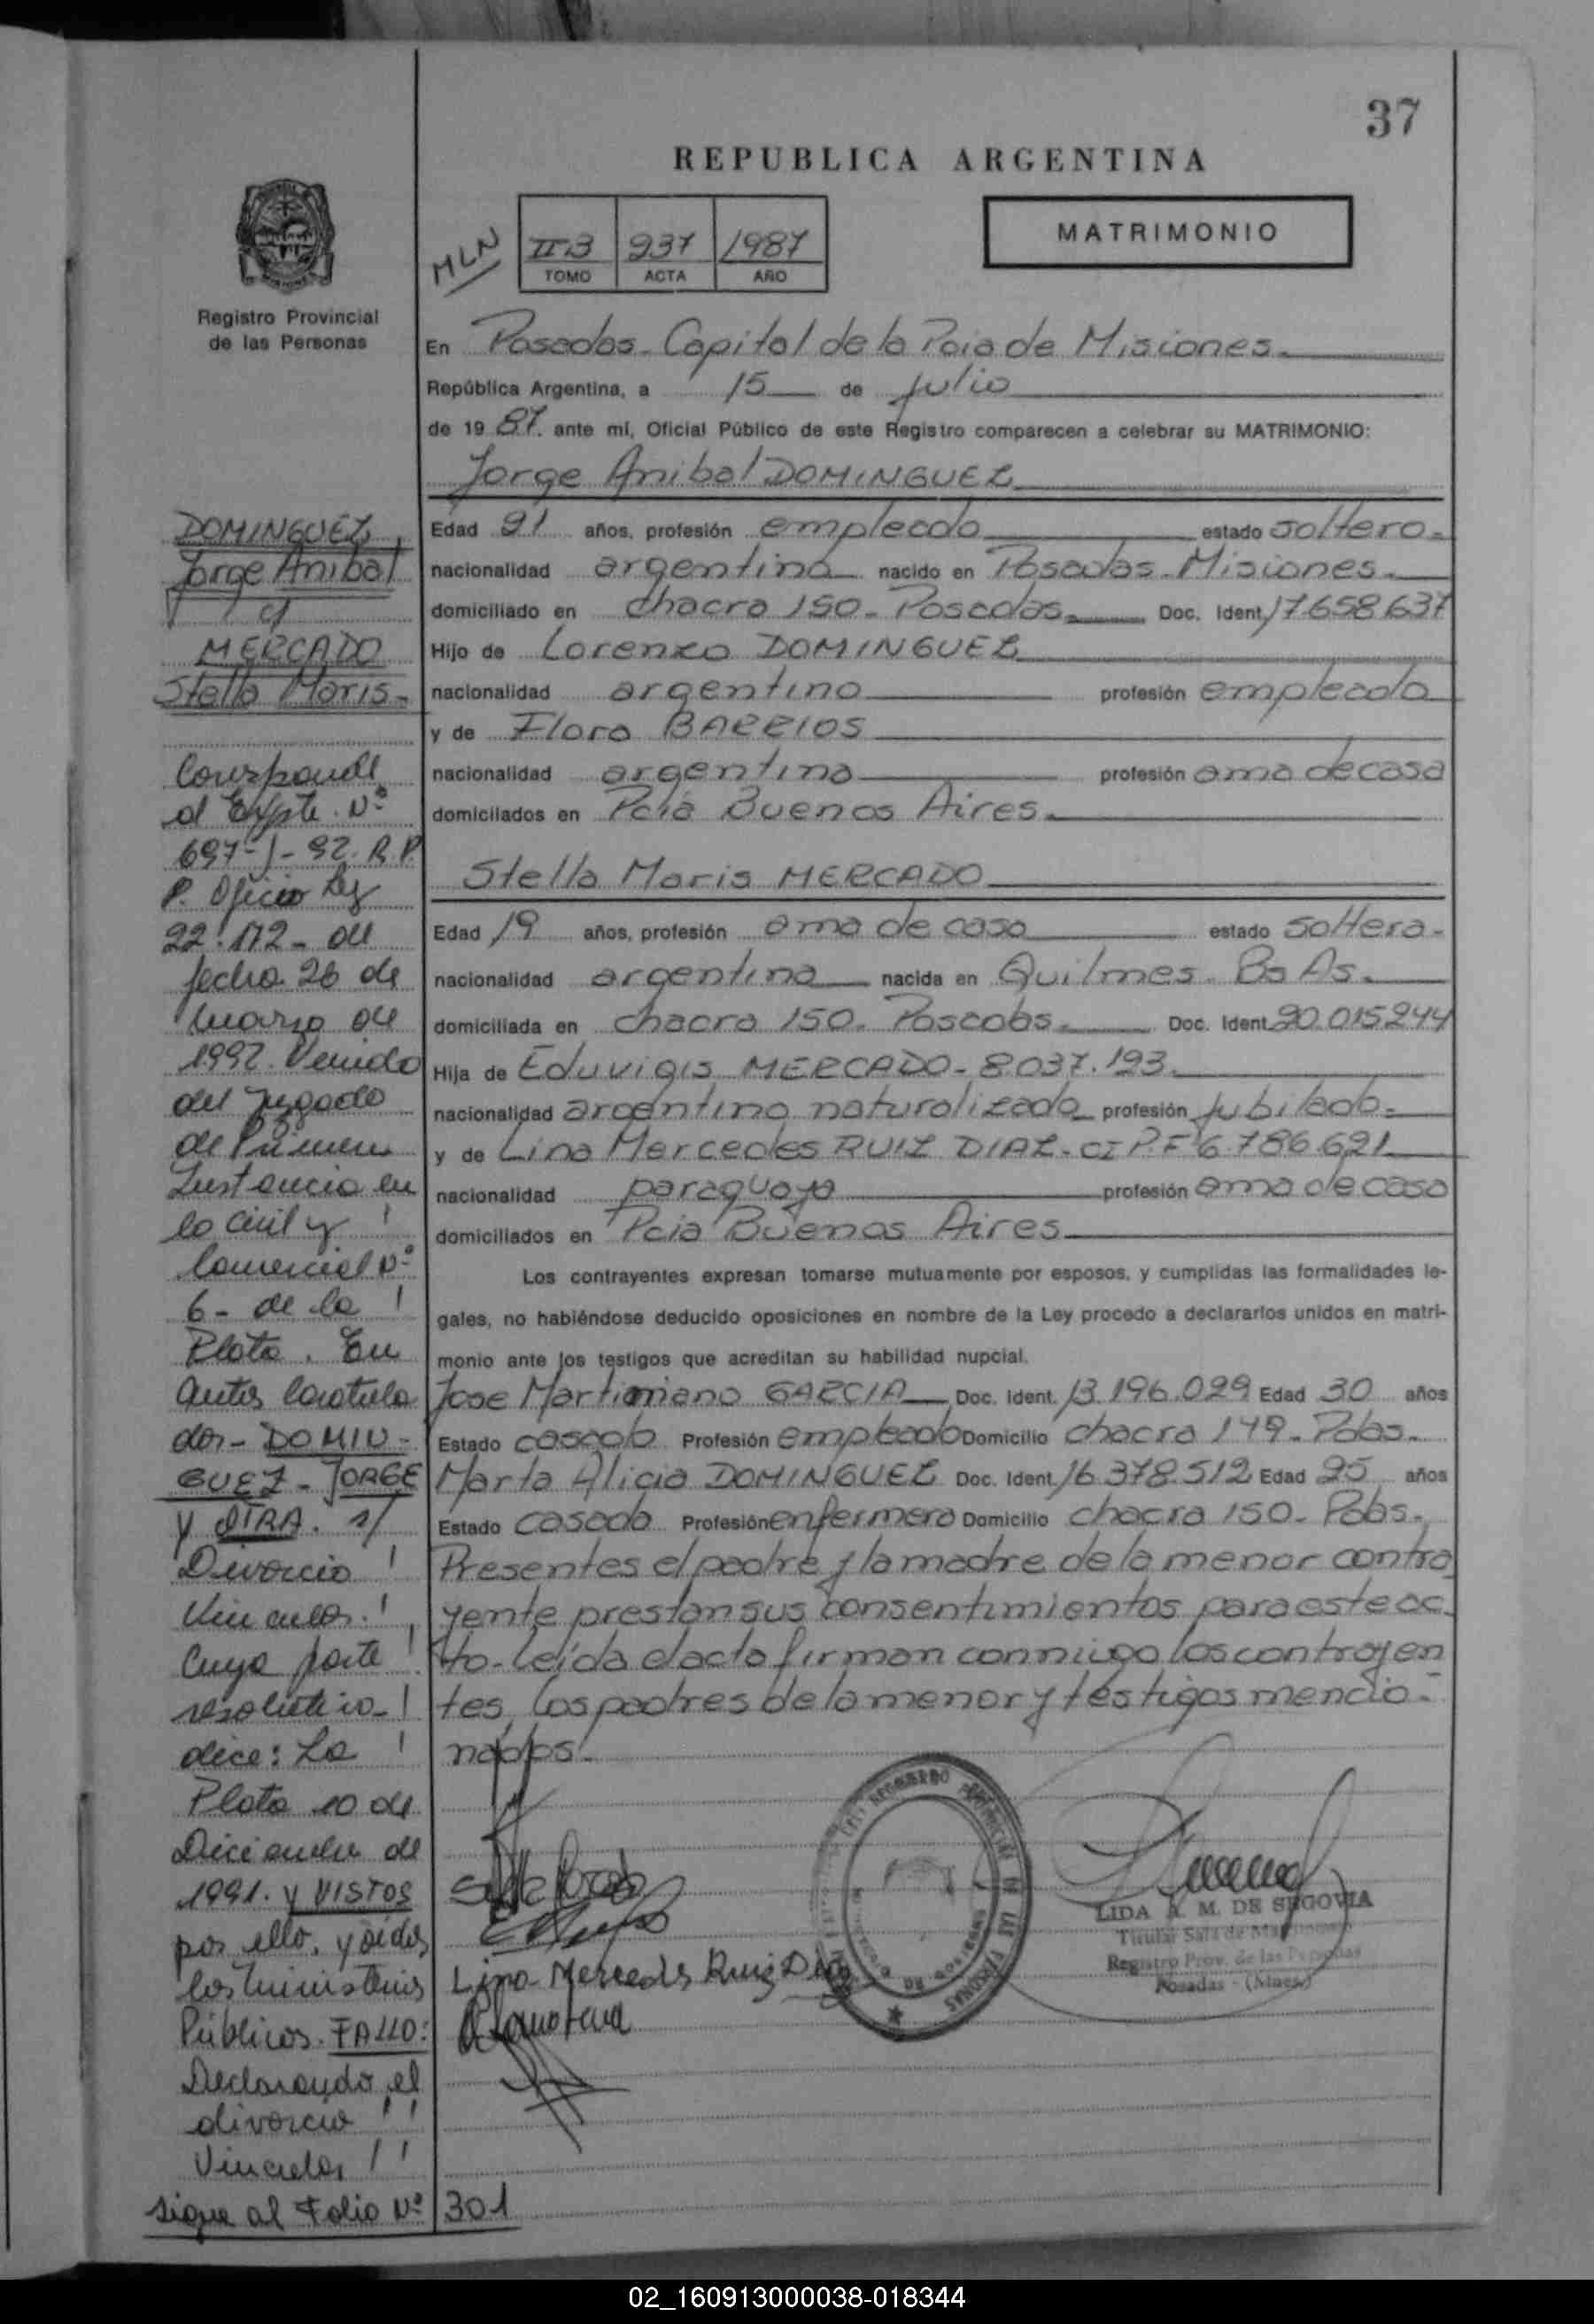 37
REPUBLICA ARGENTINA
MLN
II-3 937 1987
TOMO ACTA AÑO
MATRIMONIO
Registro Provincial
de las Personas
En Posadas-Capital de la Pcia de Misiones
República Argentina, a 15 de julio
de 19 87. ante mí, Oficial Público de este Registro comparecen a celebrar su MATRIMONIO:
Jorge Anibal DOMINGUEZ
Edad 21 años, profesión empleado estado soltero-
nacionalidad argentina nacido en Posadas-Misiones-
domiciliado en chacra 150-Posadas- Doc. Ident. 17.658.637
Hijo de Lorenzo DOMINGUEZ
nacionalidad argentino profesión empleado
y de Flora BARRIOS
nacionalidad argentina profesión ama de casa
domiciliados en Pcia Buenos Aires
Stella Maris MERCADO
Edad 19 años, profesión ama de casa estado soltera-
nacionalidad argentina nacida en Quilmes-Bs As-
domiciliada en chacra 150-Posadas- Doc. Ident. 20.015.244
Hija de Eduvigis MERCADO-8.037.193
nacionalidad argentino naturalizado profesión jubilado-
y de Lina Mercedes RUIZ DIAZ-CI P.F 6.786.621
nacionalidad paraguaya profesión ama de casa
domiciliados en Pcia Buenos Aires
Los contrayentes expresan tomarse mutuamente por esposos, y cumplidas las formalidades le-
gales, no habiéndose deducido oposiciones en nombre de la Ley procedo a declararlos unidos en matri-
monio ante los testigos que acreditan su habilidad nupcial.
Jose Martiniano GARCIA Doc. Ident. 13.196.029 Edad 30 años
Estado casado Profesión empleado Domicilio chacra 149-Pdas-
Marta Alicia DOMINGUEZ Doc. Ident. 16.378.512 Edad 25 años
Estado casada Profesión enfermera Domicilio chacra 150-Pdas-
Presentes el padre y la madre de la menor contra
yente prestan sus consentimientos para este ac
to-Leída el acta firman conmigo los contrayen
tes, los padres de la menor y testigos mencio-
nados.
Lina Mercedes Ruiz Diaz
LIDA A. M. DE SEGOVIA
Titular Sala de Matrimonios
Registro Prov. de las Personas
Posadas - (Mnes.)
DOMINGUEZ,
Jorge Anibal
c/
MERCADO
Stella Maris-
Corresponde
al Expte. Nº
697-J-92. R.P.
P. Oficio Ley
22.172- de
fecha 26 de
marzo de
1992. Venido
del Juzgado
de Primera
Instancia en
lo Civil y
Comercial Nº
6- de la
Plata. En
autos caratula
dos- DOMIN-
GUEZ-JORGE
y OTRA. s/
Divorcio
Vincular.
Cuya parte
resolutiva-
dice: La
Plata 10 de
Diciembre de
1991. y VISTOS
por ello, y oidos
los ministerios
Públicos. FALLO:
Declarando el
divorcio
Vincular
Sigue al Folio Nº 301
02_160913000038-018344